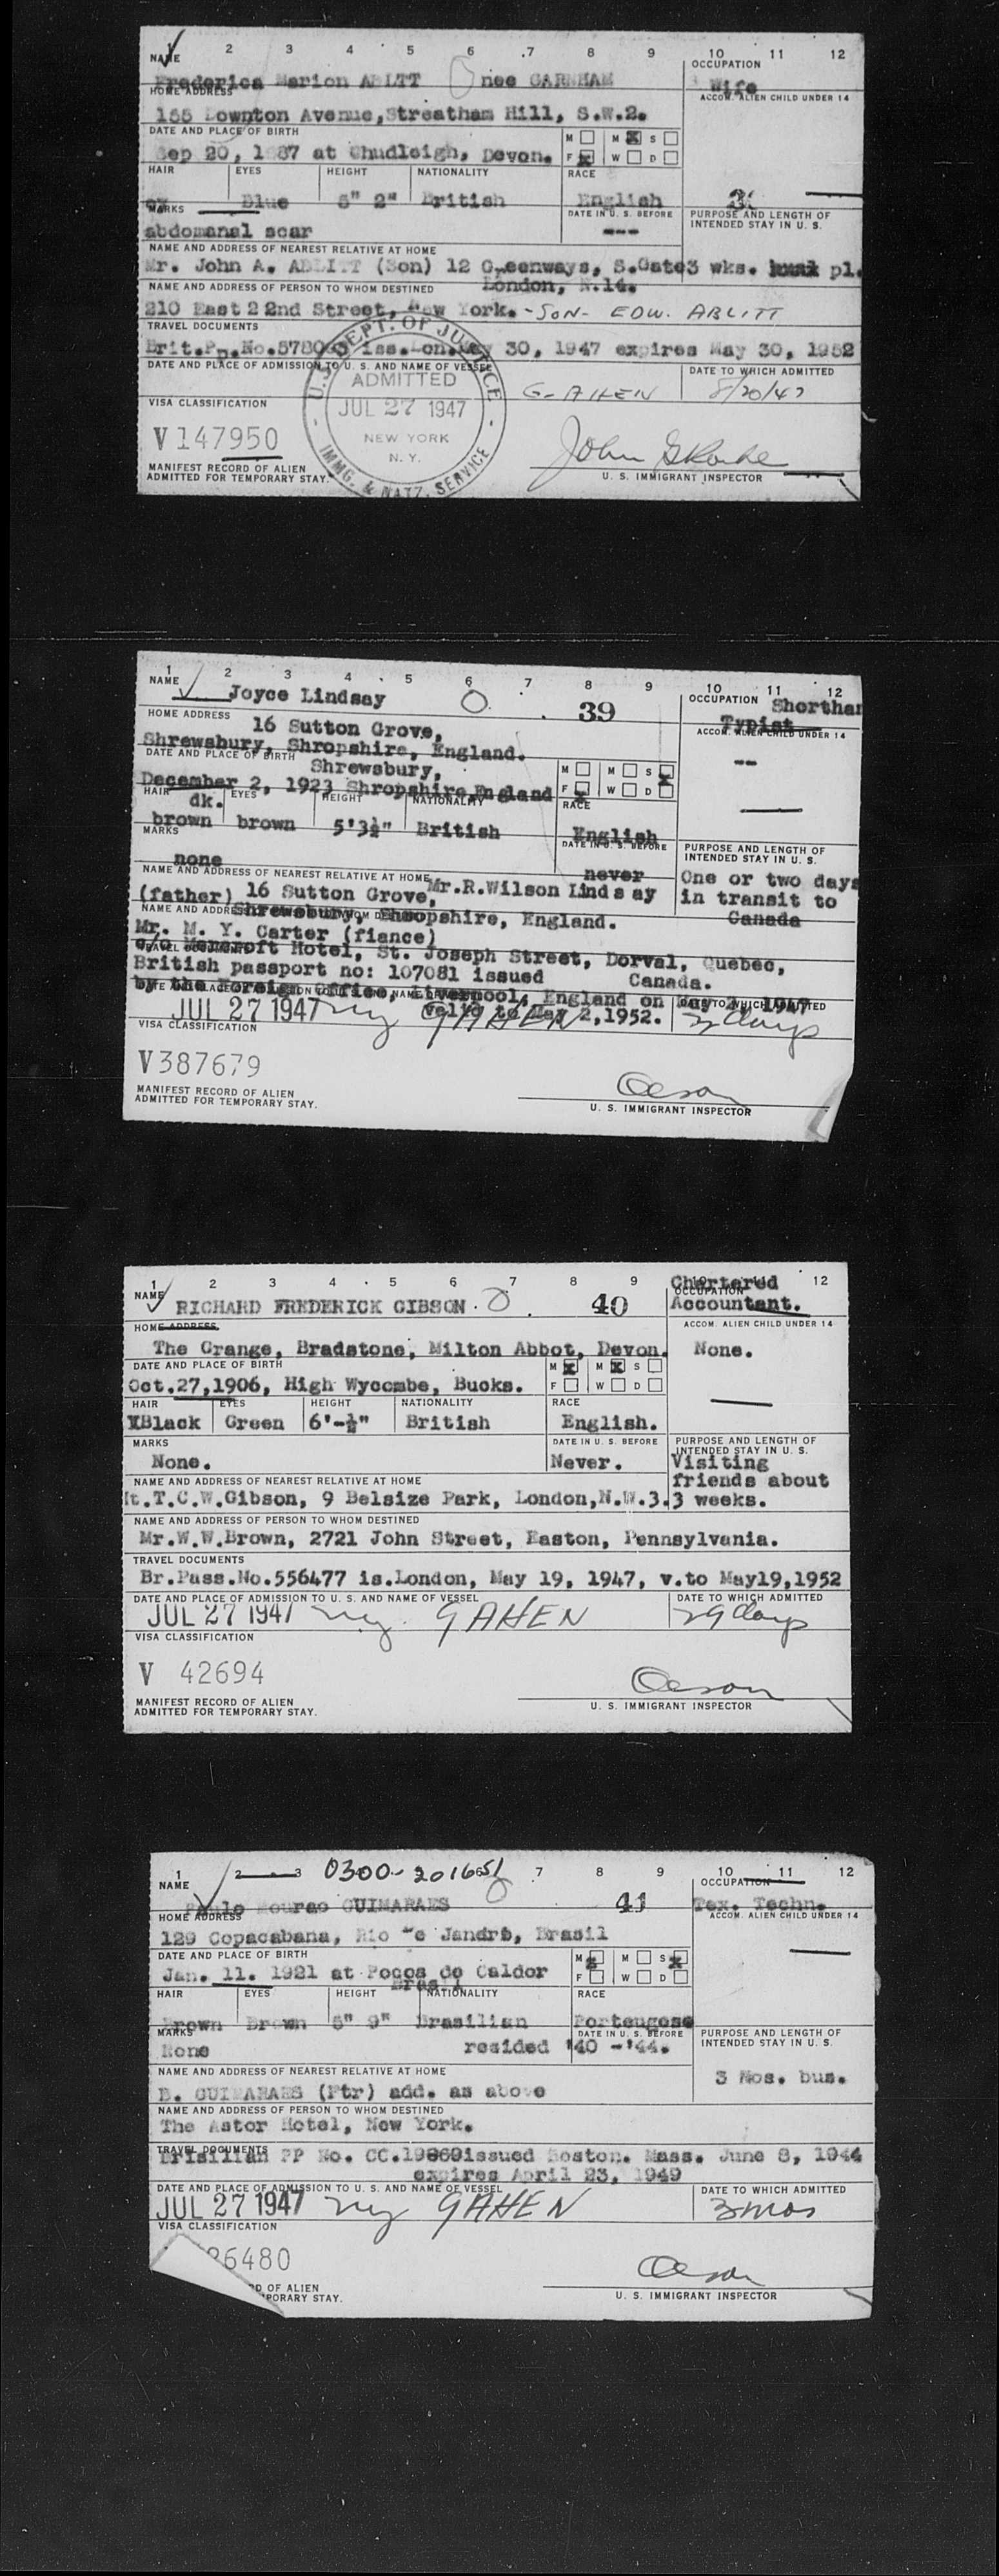 1 2 3 4 5 6 7 8 9 10 11 12
NAME
OCCUPATION
Frederica Marion ABLITT nee
Wife
HOME ADDRESS
ACCOM. ALIEN CHILD UNDER 14
155 Downton Avenue, Streatham Hill, S.W.2.
DATE AND PLACE OF BIRTH
M M X S
Sep 20, 1887 at Chudleigh, Devon.
F X W D
HAIR EYES HEIGHT NATIONALITY RACE
Blue 5" 2" British English
MARKS
DATE IN U. S. BEFORE
PURPOSE AND LENGTH OF INTENDED STAY IN U. S.
abdomanal scar ---
NAME AND ADDRESS OF NEAREST RELATIVE AT HOME
Mr. John A. ABLITT (Son) 12 Greenways, S.Gate 3 wks. pl.
NAME AND ADDRESS OF PERSON TO WHOM DESTINED
London, N.14.
210 East 22nd Street, New York. - SON - EDW. ABLITT
TRAVEL DOCUMENTS
Brit.Pp.No. iss. Lon. May 30, 1947 expires May 30, 1952
DATE AND PLACE OF ADMISSION TO U. S. AND NAME OF VESSEL
DATE TO WHICH ADMITTED
U. S. DEPT. OF JUSTICE
ADMITTED
JUL 27 1947
NEW YORK
N. Y.
IMMG. & NATZ. SERVICE
G-AHEN
8/20/47
VISA CLASSIFICATION
V 147950
MANIFEST RECORD OF ALIEN
ADMITTED FOR TEMPORARY STAY.
U. S. IMMIGRANT INSPECTOR
1 2 3 4 5 6 7 8 9 10 11 12
NAME
Joyce Lindsay
39
OCCUPATION Shorthan
Typist
HOME ADDRESS
ACCOM. ALIEN CHILD UNDER 14
16 Sutton Grove,
Shrewsbury, Shropshire, England.
--
DATE AND PLACE OF BIRTH
Shrewsbury,
December 2, 1923 Shropshire, England
M M S X
F X W D
HAIR EYES HEIGHT NATIONALITY RACE
dk.
brown brown 5'3½" British English
MARKS
DATE IN U. S. BEFORE
PURPOSE AND LENGTH OF INTENDED STAY IN U. S.
none
never
NAME AND ADDRESS OF NEAREST RELATIVE AT HOME
Mr.R.Wilson Lindsay
One or two days
(father) 16 Sutton Grove,
in transit to
Shrewsbury, Shropshire, England.
Canada
NAME AND ADDRESS OF PERSON TO WHOM DESTINED
Mr. M. Y. Carter (fiance)
c/o Hotel, St. Joseph Street, Dorval, Quebec,
TRAVEL DOCUMENTS
British passport no: 107081 issued Canada.
by the Foreign Office, Liverpool, England on May 2, 1947
DATE AND PLACE OF ADMISSION TO U. S. AND NAME OF VESSEL
DATE TO WHICH ADMITTED
JUL 27 1947 ny GAHEN
valid to May 2,1952.
days
VISA CLASSIFICATION
V387679
MANIFEST RECORD OF ALIEN
ADMITTED FOR TEMPORARY STAY.
Oeson
U. S. IMMIGRANT INSPECTOR
1 2 3 4 5 6 7 8 9 12
NAME
RICHARD FREDERICK GIBSON.
40
OCCUPATION
Chartered
Accountant.
HOME ADDRESS
ACCOM. ALIEN CHILD UNDER 14
The Grange, Bradstone, Milton Abbot, Devon. None.
DATE AND PLACE OF BIRTH
M X M X S
Oct.27,1906, High Wycombe, Bucks.
F W D
HAIR EYES HEIGHT NATIONALITY RACE
Black Green 6'-½" British English.
MARKS
DATE IN U. S. BEFORE
PURPOSE AND LENGTH OF INTENDED STAY IN U. S.
None. Never. Visiting
NAME AND ADDRESS OF NEAREST RELATIVE AT HOME
friends about
T.C.W.Gibson, 9 Belsize Park, London,N.W.3. 3 weeks.
NAME AND ADDRESS OF PERSON TO WHOM DESTINED
Mr.W.W.Brown, 2721 John Street, Easton, Pennsylvania.
TRAVEL DOCUMENTS
Br.Pass.No.556477 is.London, May 19, 1947, v.to May19,1952
DATE AND PLACE OF ADMISSION TO U. S. AND NAME OF VESSEL
DATE TO WHICH ADMITTED
JUL 27 1947 ny. GAHEN 29 days
VISA CLASSIFICATION
V 42694
MANIFEST RECORD OF ALIEN
ADMITTED FOR TEMPORARY STAY.
Oeson
U. S. IMMIGRANT INSPECTOR
1 2 3 0300-201651 7 8 9 10 11 12
NAME
OCCUPATION
Paulo Mourao GUIMARAES
41
Tex. Techn.
HOME ADDRESS
ACCOM. ALIEN CHILD UNDER 14
129 Copacabana, Rio De Jandre, Brasil
DATE AND PLACE OF BIRTH
M X M S X
Jan. 11. 1921 at Pocos de Caldor
F W D
Brasil
HAIR EYES HEIGHT NATIONALITY RACE
Brown Brown 5" 9" Brasilian Porteugese
MARKS
DATE IN U. S. BEFORE
PURPOSE AND LENGTH OF INTENDED STAY IN U. S.
None resided '40 -'44.
NAME AND ADDRESS OF NEAREST RELATIVE AT HOME
3 Mos. bus.
D. GUIMARAES (Ftr) add. as above
NAME AND ADDRESS OF PERSON TO WHOM DESTINED
The Astor Hotel, New York.
TRAVEL DOCUMENTS
Brisilian PP No. CC.19869issued Boston. Mass. June 8, 1944
expires April 23, 1949
DATE AND PLACE OF ADMISSION TO U. S. AND NAME OF VESSEL
DATE TO WHICH ADMITTED
JUL 27 1947 ny GAHEN 3 mos
VISA CLASSIFICATION
6480
OF ALIEN
PORARY STAY.
Oeson
U. S. IMMIGRANT INSPECTOR